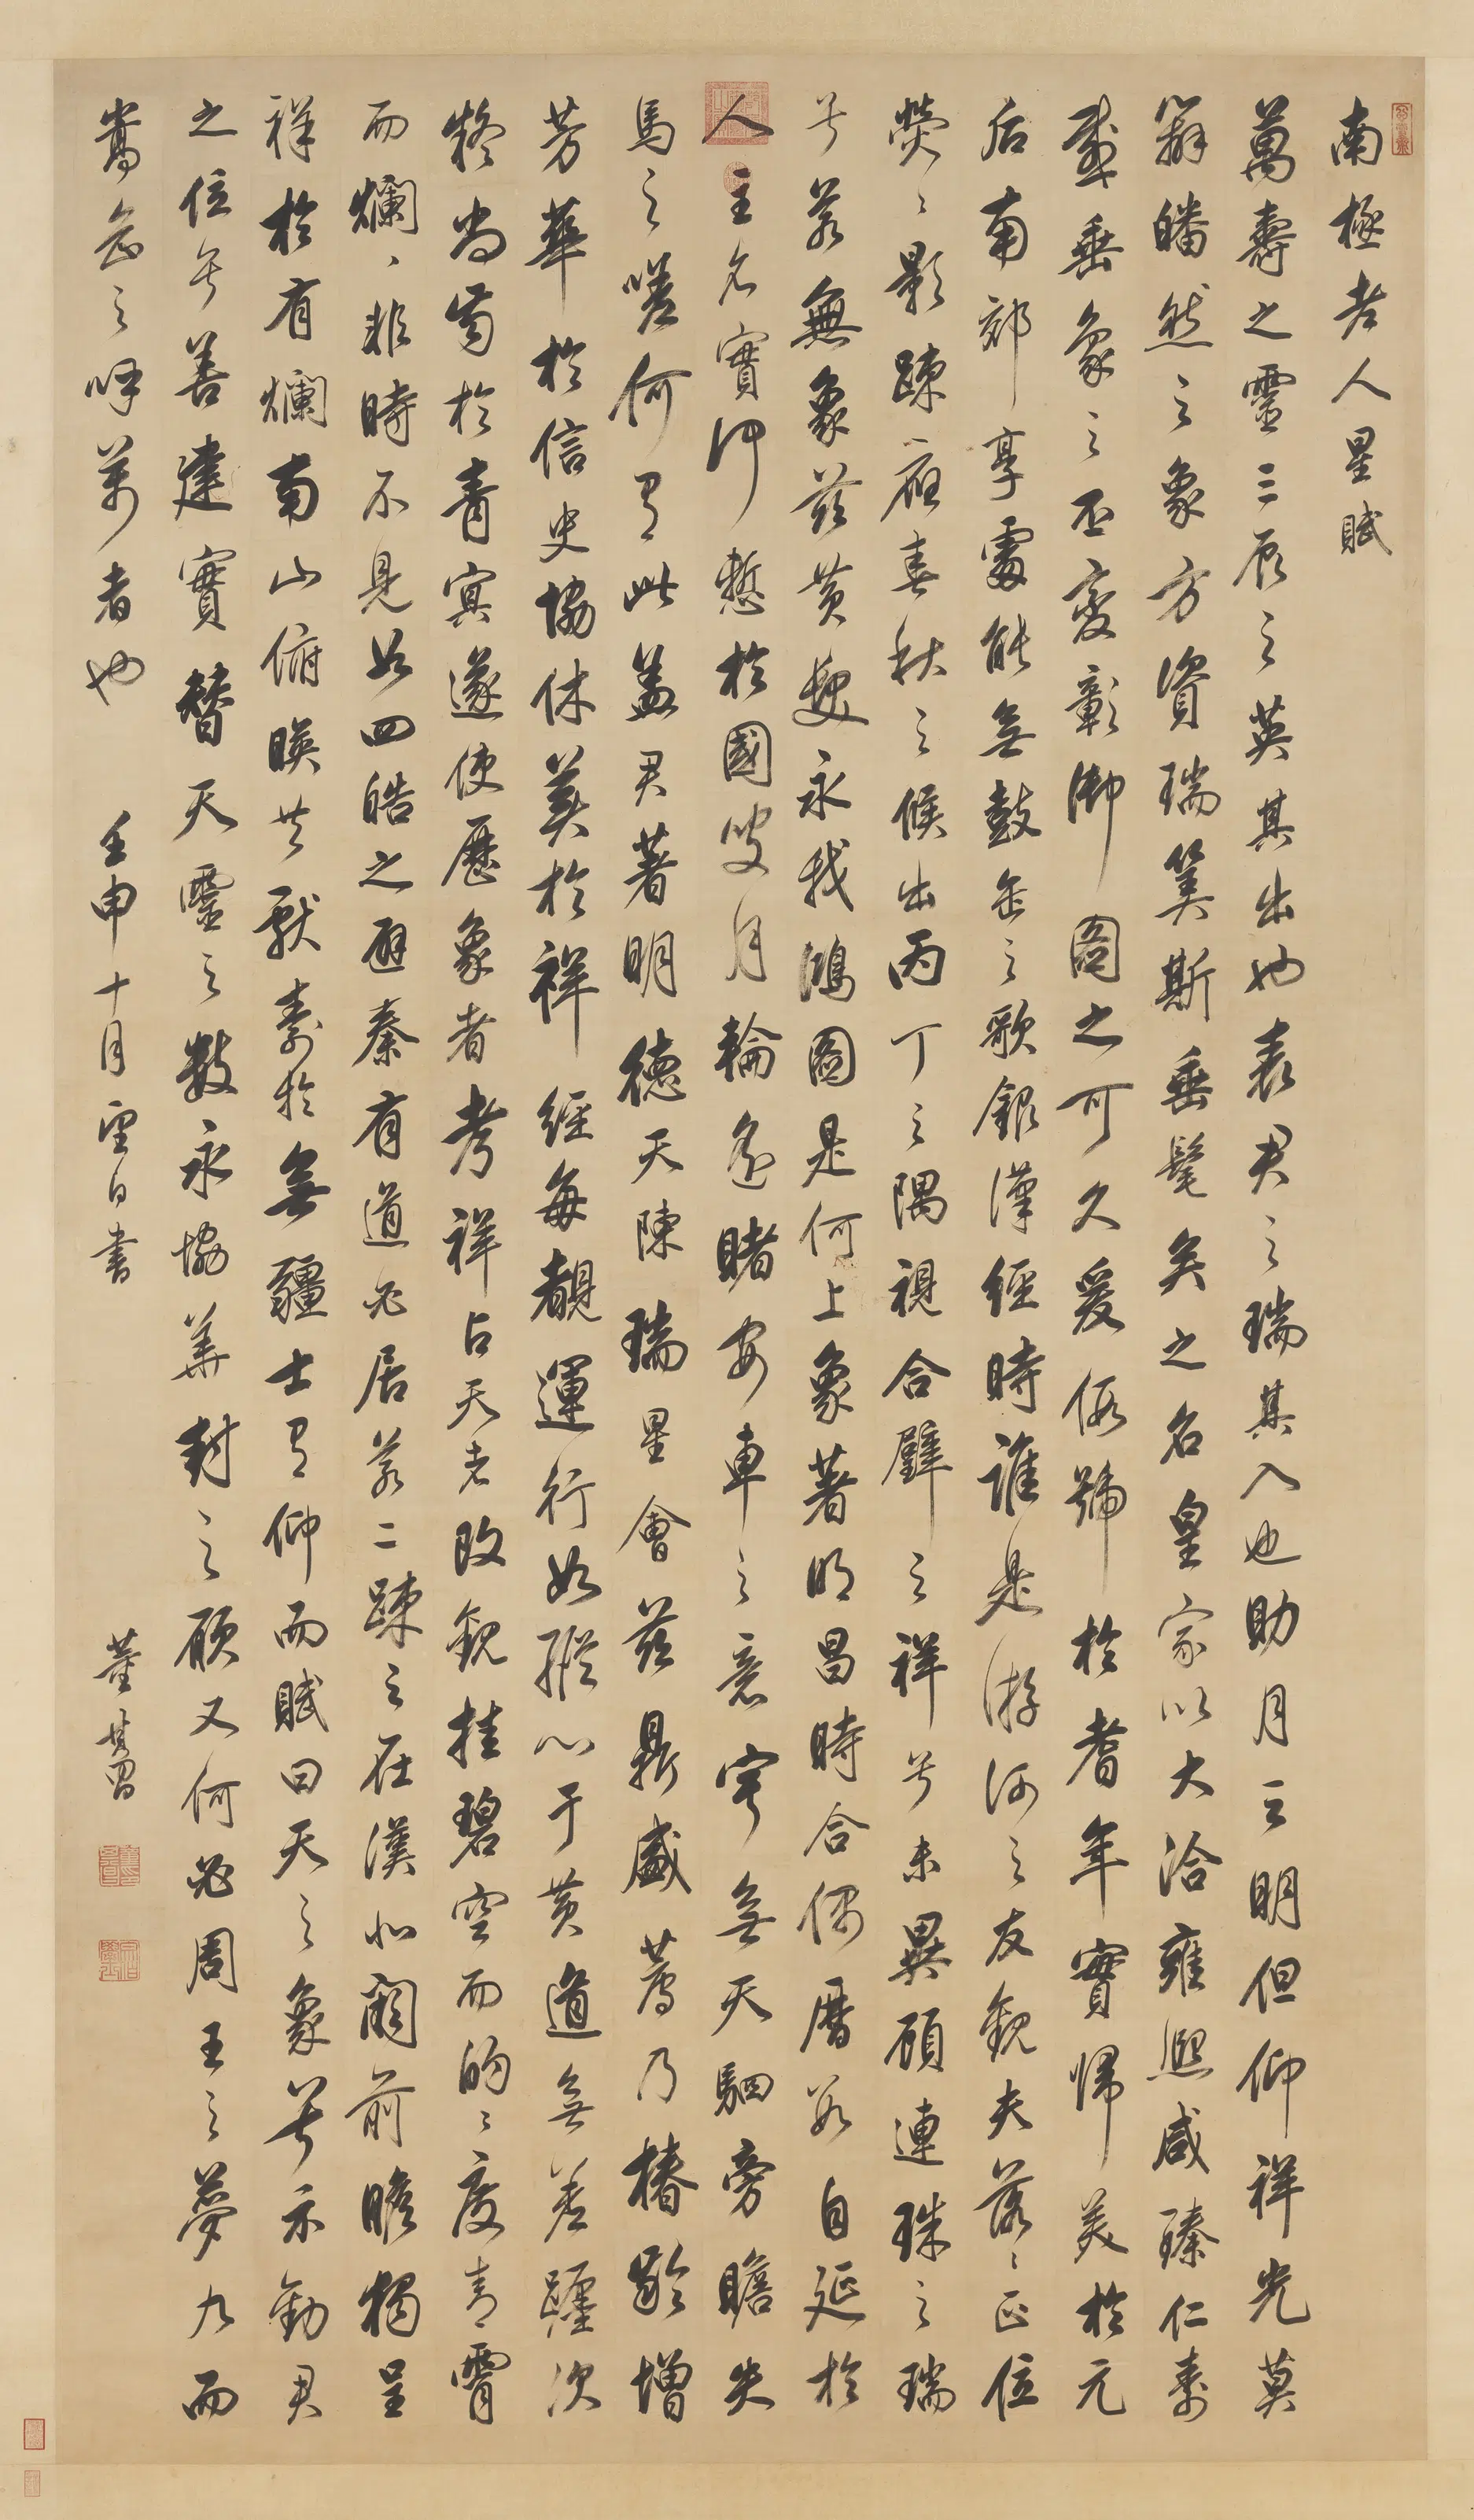 南極老人星賦
萬壽之靈三辰之英其出也表君之瑞其入也助月之明但仰祥光莫
辨皤然之象方資瑞筭斯垂髦矣之名皇家以大洽雍熙咸臻仁壽
感垂象之丕變彰御圖之可久爰假號於耆年實歸美於元
后南郊享處能無鼓缶之歌銀漢經時誰是游河之友觀夫落落正位
熒熒影疎應春秋之候出丙丁之隅視合璧之祥兮未異顧連珠之瑞
兮若無象茲黃耇永我鴻圖是何上象著明昌時合偶曆數自延於
人主名實何慙於國叟月輪遙睹安車之意寧無天駟旁瞻失
馬之嗟何有此蓋君著明德天陳瑞星會茲鼎盛薦乃椿齡增
芳華於信史協休美於祥經每覩運行如縱心于黃道無差躔次
疑尚齒於青冥遂使歷象者考祥占天者改觀挂碧空而的的度青霄
而爛爛非時不見如四皓之避秦有道必居若二疎之在漢北闕前瞻獨呈
祥於有爛南山俯映共獻壽於無疆士有仰而賦曰天之象兮示勸君
之位兮善建實替天靈之數永協華封之願又何必周王之夢九而
嵩岳之呼萬者也 壬申十月望日書 董其昌